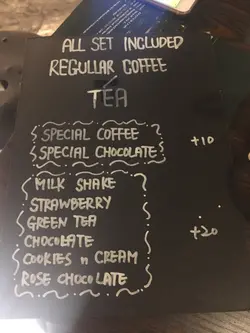 ALL SET INCLUDED
REGULLAR COFFEE
TEA
SPECIAL COFFEE
SPECIAL CHOCOLATE
+10
MILK SHAKE
STRAWBERRY
GREEN TEA
CHOCOLATE
+20
COOKIES n CREAM
ROSE CHOCOLATE